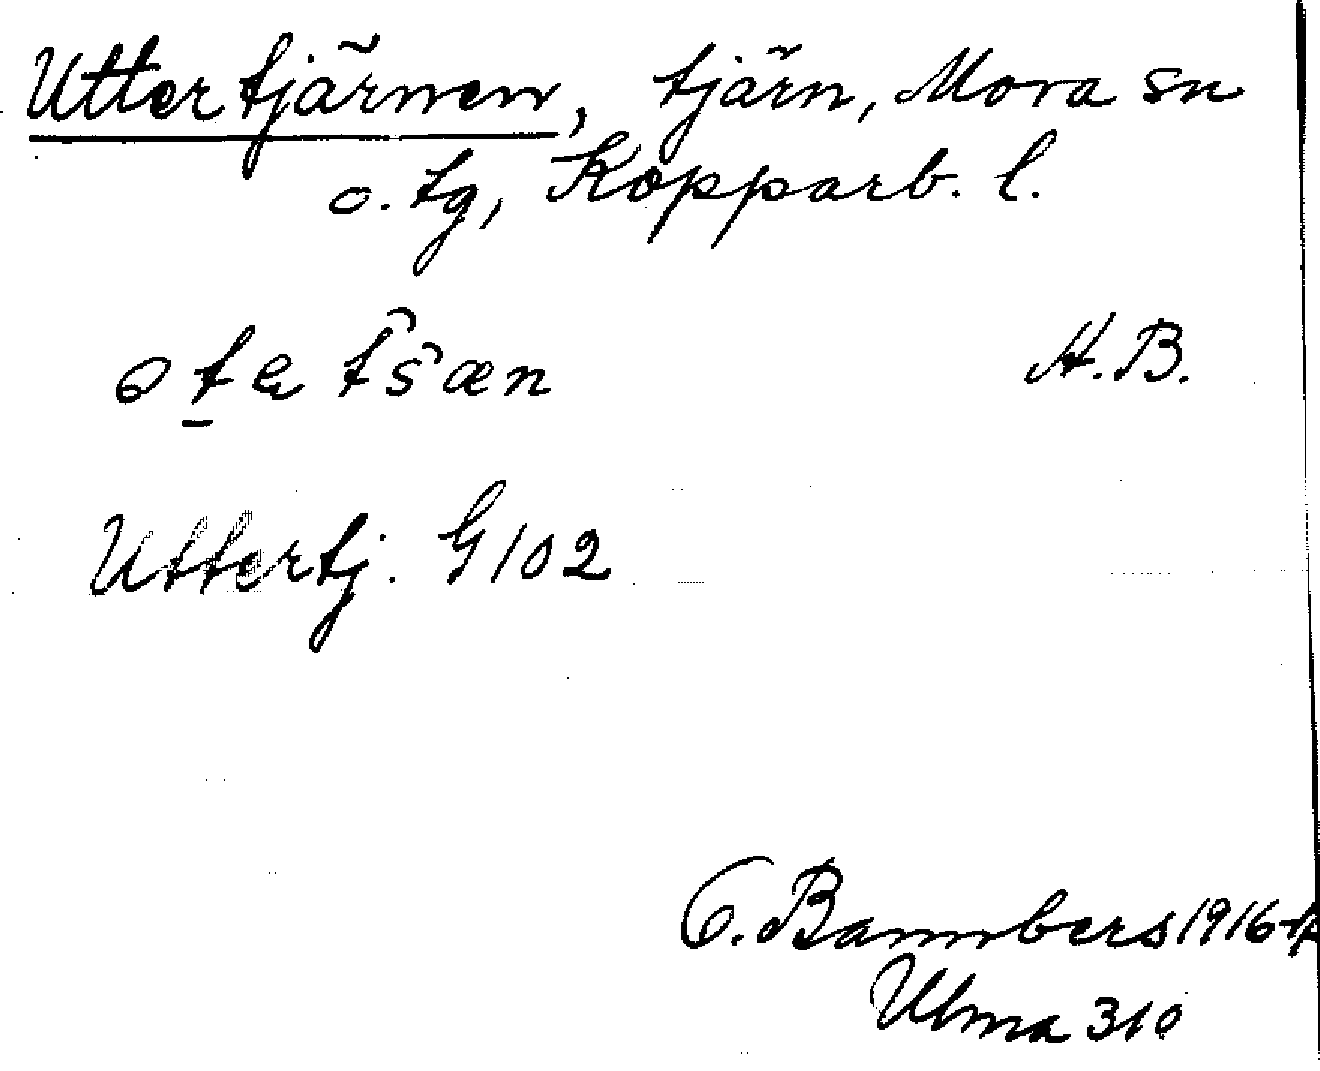 Uttertjärnen, tjärn, Mora sn
o. tg, Kopparb. l.
H.B.
Uttertj. G 102
O. Bannbers 1916-17
Ulma 310